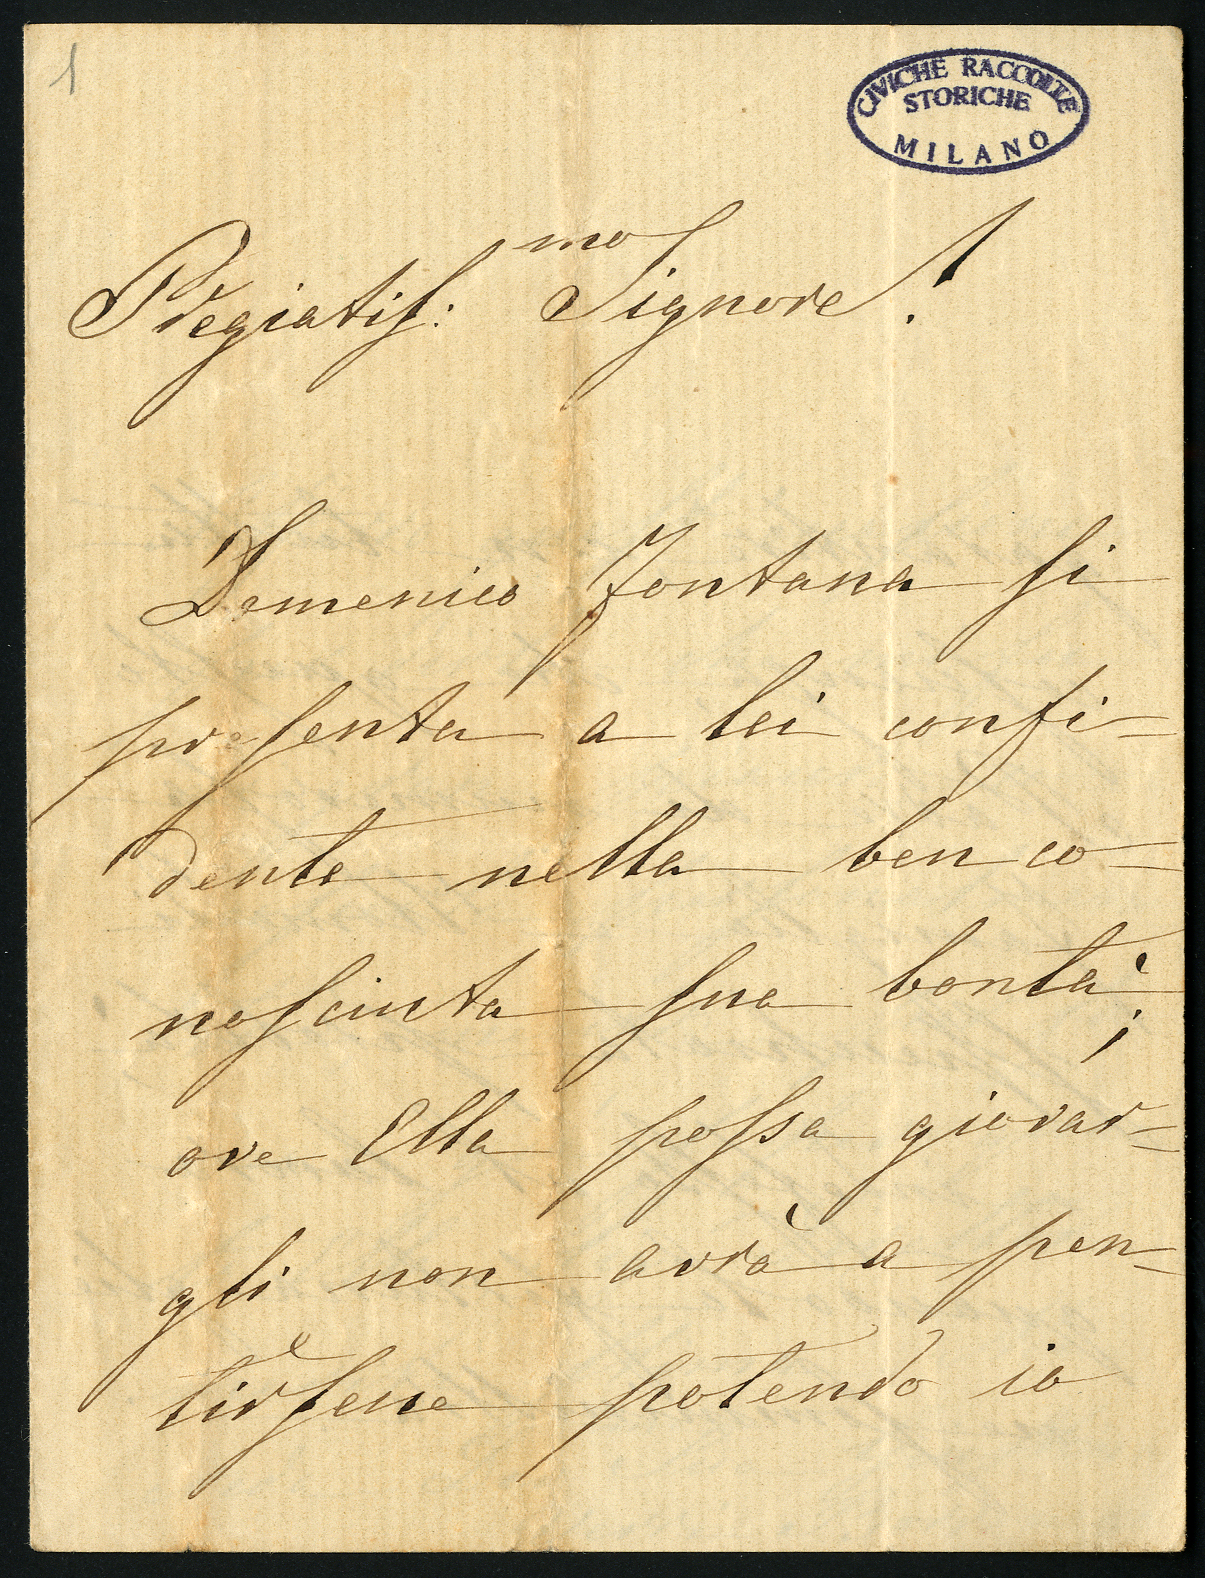 1
CIVICHE RACCOLTE
STORICHE
MILANO
Pregiatiss:mo Signore!
Domenico Fontana si
presenta a lei confi-
dente nella ben co-
nosciuta sua bontà;
ove Ella possa giovar-
gli non avrà a pen-
tirsene potendo io